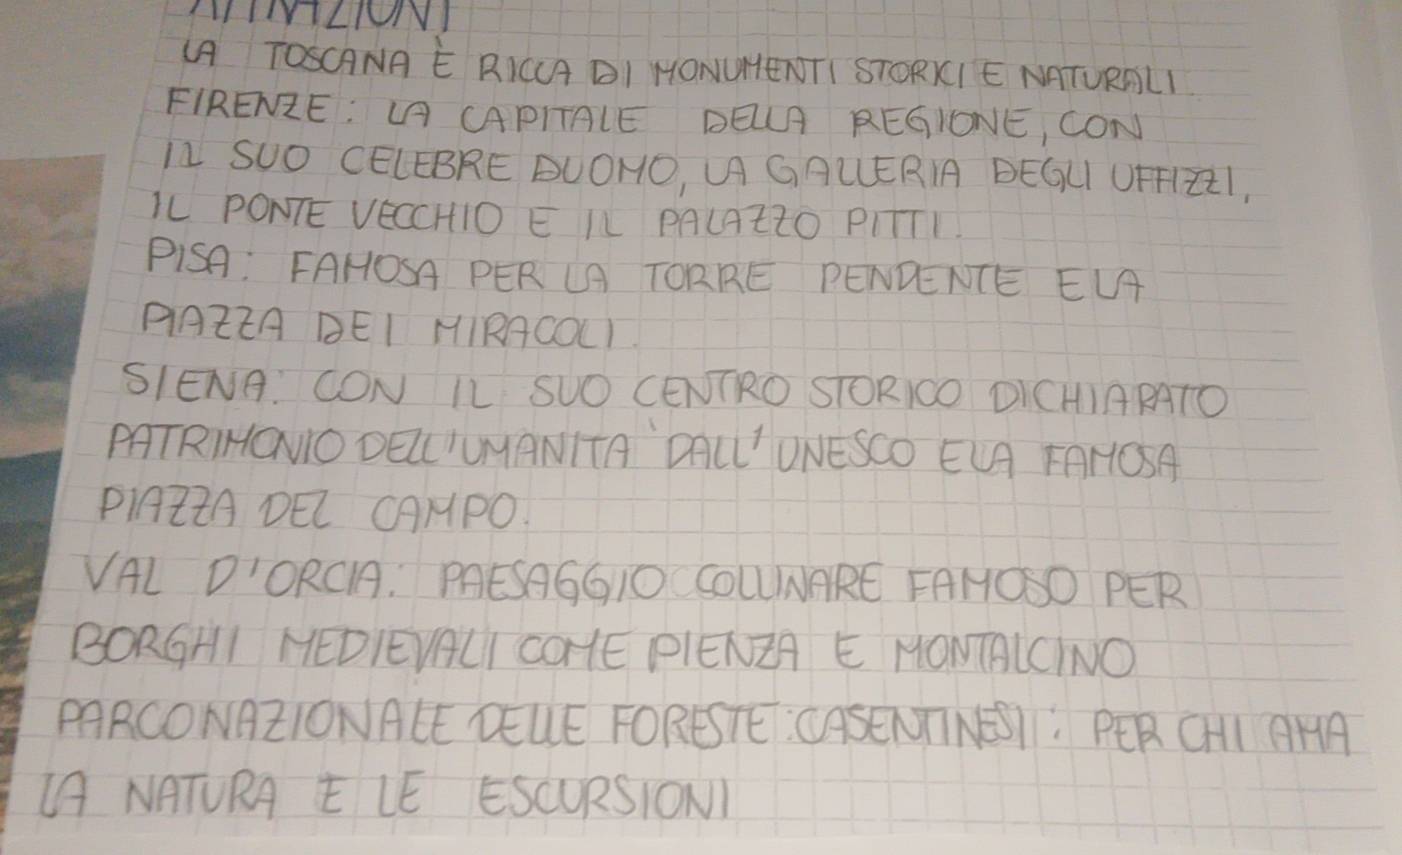 ATTRAZIONI
LA TOSCANA È RICCA DI MONUMENTI STORICI E NATURALI.
FIRENZE: LA CAPITALE DELLA REGIONE, CON
IL SUO CELEBRE DUOMO, LA GALLERIA DEGLI UFFIZZI,
IL PONTE VECCHIO E IL PALAZZO PITTI.
PISA: FAMOSA PER LA TORRE PENDENTE E LA
PIAZZA DEI MIRACOLI.
SIENA: CON IL SUO CENTRO STORICO DICHIARATO
PATRIMONIO DELL'UMANITA' DALL'UNESCO E LA FAMOSA
PIAZZA DEL CAMPO.
VAL D'ORCIA: PAESAGGIO COLLINARE FAMOSO PER
BORGHI MEDIEVALI COME PIENZA E MONTALCINO
PARCO NAZIONALE DELLE FORESTE CASENTINESI: PER CHI AMA
LA NATURA E LE ESCURSIONI